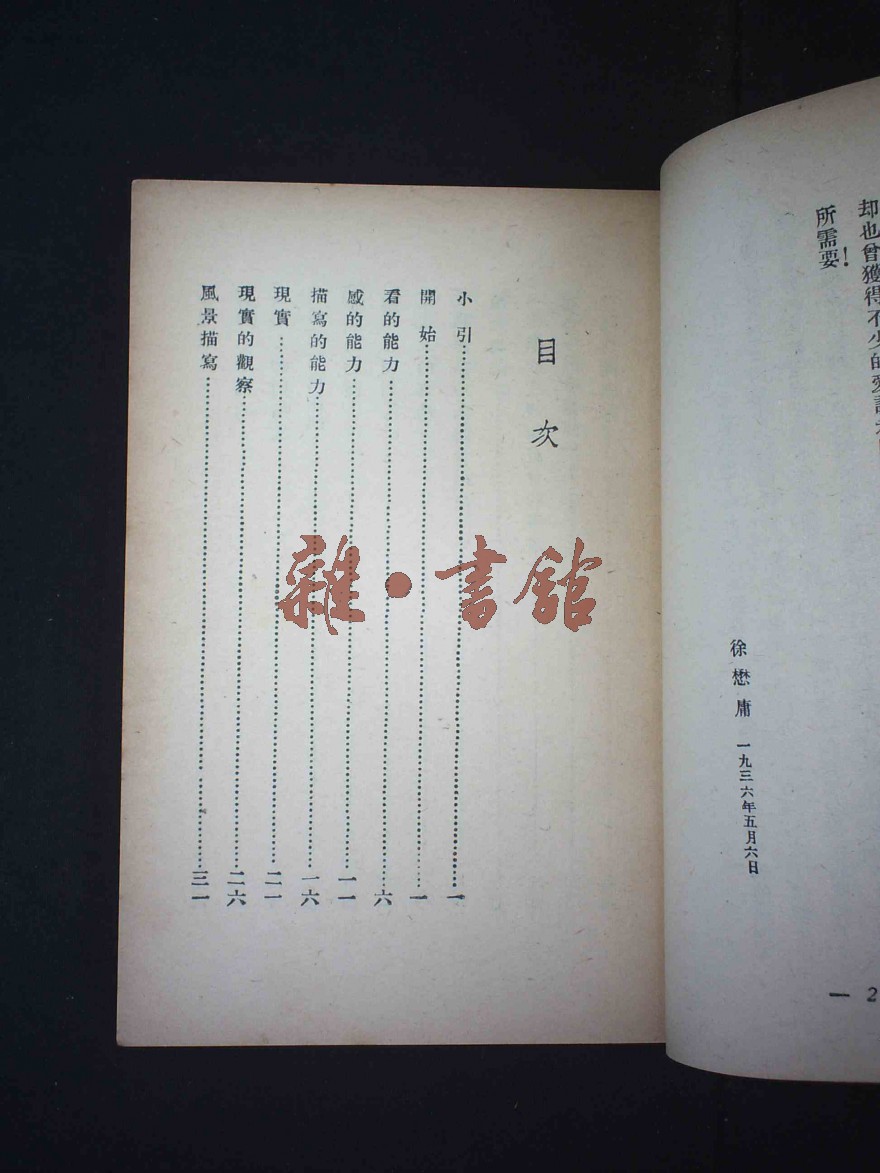 却也曾獲得不少的愛
所需要!
徐懋庸 一九三六年五月六日
— 2
目次
小引…………一
開始…………一
看的能力…………六
感的能力…………一一
描寫的能力…………一六
現實…………二一
現實的觀察…………二六
風景描寫…………三一
雜·書館